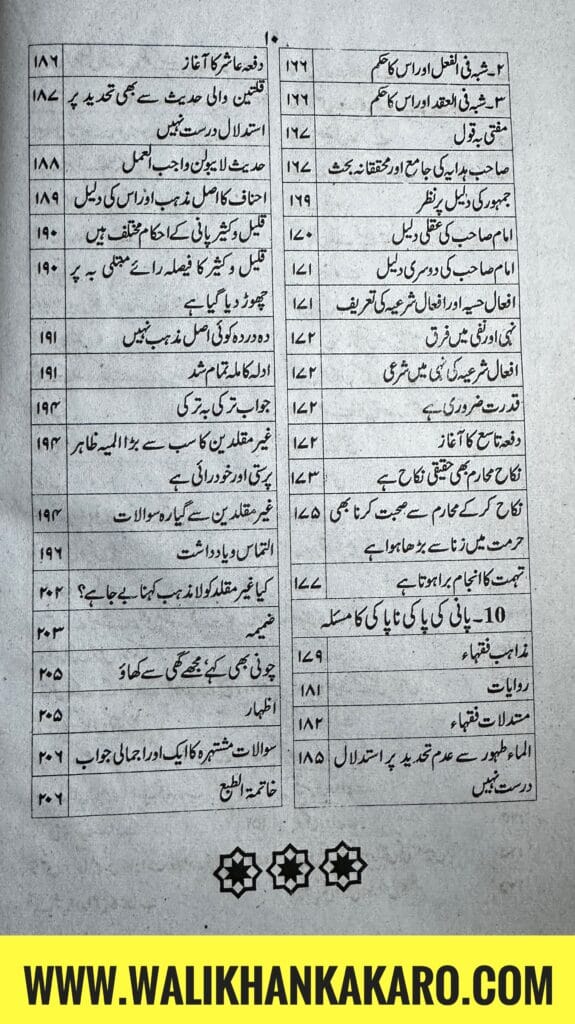 ۱۰
۲۔ شبہ فی الفعل اور اس کا حکم ۱۶۶
۳۔ شبہ فی العقد اور اس کا حکم ۱۶۶
مفتی بہ قول ۱۶۷
صاحب ہدایہ کی جامع اور محققانہ بحث ۱۶۷
جمہور کی دلیل پر نظر ۱۶۹
امام صاحب کی عقلی دلیل ۱۷۰
امام صاحب کی دوسری دلیل ۱۷۱
افعال حسیہ اور افعال شرعیہ کی تعریف ۱۷۱
نہی اور نفی میں فرق ۱۷۲
افعال شرعیہ کی نہی میں شرعی ۱۷۲
قدرت ضروری ہے ۱۷۲
دفعہ تاسع کا آغاز ۱۷۲
نکاح محارم بھی حقیقی نکاح ہے ۱۷۳
نکاح کر کے محارم سے صحبت کرنا بھی ۱۷۵
حرمت میں زنا سے بڑھا ہوا ہے
تہمت کا انجام برا ہوتا ہے ۱۷۷
10۔ پانی کی پاکی ناپاکی کا مسئلہ
مذاہب فقہاء ۱۷۹
روایات ۱۸۱
مستدلات فقہاء ۱۸۲
الماء طہور سے عدم تحدید پر استدلال ۱۸۵
درست نہیں
دفعہ عاشر کا آغاز ۱۸۶
قلتین والی حدیث سے بھی تحدید پر ۱۸۷
استدلال درست نہیں
حدیث لا یبولن واجب العمل ۱۸۸
احناف کا اصل مذہب اور اس کی دلیل ۱۸۹
قلیل و کثیر پانی کے احکام مختلف ہیں ۱۹۰
قلیل و کثیر کا فیصلہ رائے مبتلی بہ پر ۱۹۰
چھوڑ دیا گیا ہے
دہ در دہ کوئی اصل مذہب نہیں ۱۹۱
ادلہ کاملہ تمام شد ۱۹۱
جواب ترکی بہ ترکی ۱۹۴
غیر مقلدین کا سب سے بڑا المیہ ظاہر ۱۹۴
پرستی اور خود رائی ہے
غیر مقلدین سے گیارہ سوالات ۱۹۴
التماس و یادداشت ۱۹۶
کیا غیر مقلد کو لا مذہب کہنا بے جا ہے؟ ۲۰۲
ضمیمہ ۲۰۳
چونی بھی کہے، مجھے گھی سے کھاؤ ۲۰۵
اظہار ۲۰۵
سوالات مشتہرہ کا ایک اور اجمالی جواب ۲۰۶
خاتمۃ الطبع ۲۰۶
WWW.WALIKHANKAKARO.COM